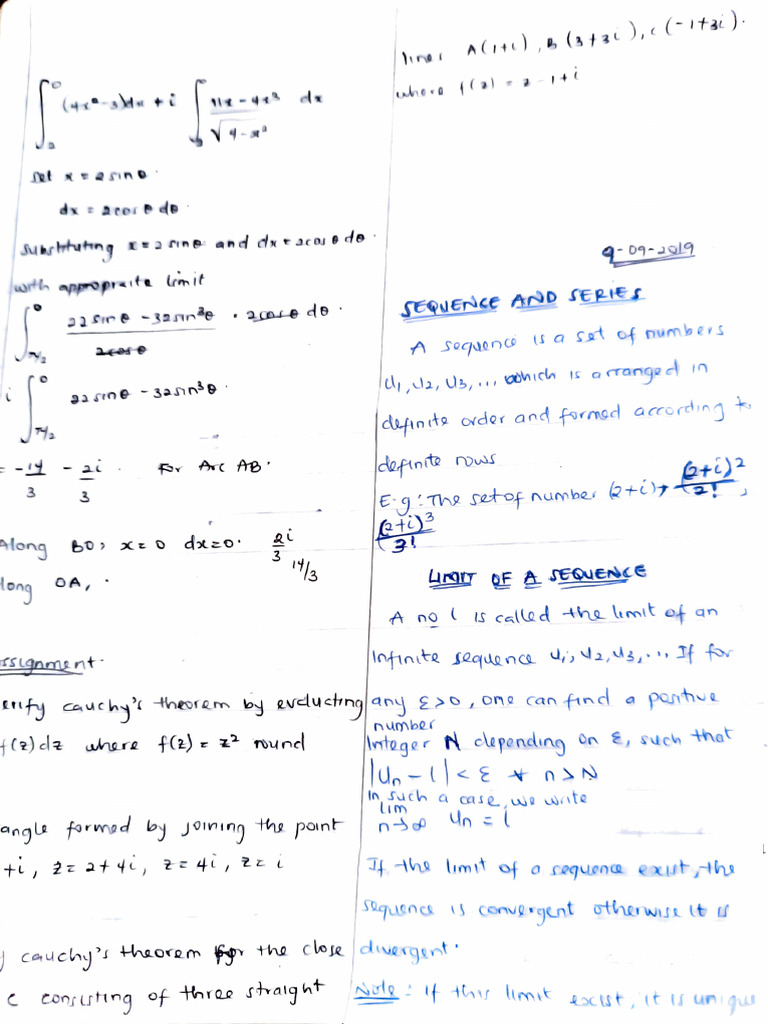 ∫₂⁰ (4x²-3)dx + i ∫₂⁰ (11x - 4x³)/√(4-x²) dx
set x = 2sinθ.
dx = 2cosθ dθ.
substituting x = 2sinθ and dx = 2cosθ dθ.
with appropraite limit
∫_{π/2}^0 (22sinθ - 32sin³θ)/(2cosθ) · 2cosθ dθ.
i ∫_{π/2}^0 22sinθ - 32sin³θ.
= -14/3 - 2i/3 . For Arc AB.
Along BO, x=0 dx=0. 2i/3 14/3
long OA, .
ssignment.
erify cauchy's theorem by evaluating
f(z)dz where f(z) = z² round
angle formed by joining the point
+i, z = 2+4i, z = 4i, z = i
y cauchy's theorem for the close
c consisting of three straight
lines A(1+i), B(3+3i), C(-1+3i).
where f(z) = z-1+i
9-09-2019
SEQUENCE AND SERIES
A sequence is a set of numbers
U₁, U₂, U₃, ... which is arranged in
definite order and formed according to
definite rows
E.g: The set of number (2+i), (2+i)²/2!,
(2+i)³/3!
LIMIT OF A SEQUENCE
A no l is called the limit of an
infinite sequence U₁, U₂, U₃, ... If for
any ε>0, one can find a positive
number
Integer N depending on ε, such that
|Uₙ - l| < ε ∀ n > N
In such a case, we write
lim n→∞ Uₙ = l
If the limit of a sequence exist, the
sequence is convergent otherwise it is
divergent.
Note: If this limit exist, it is unique